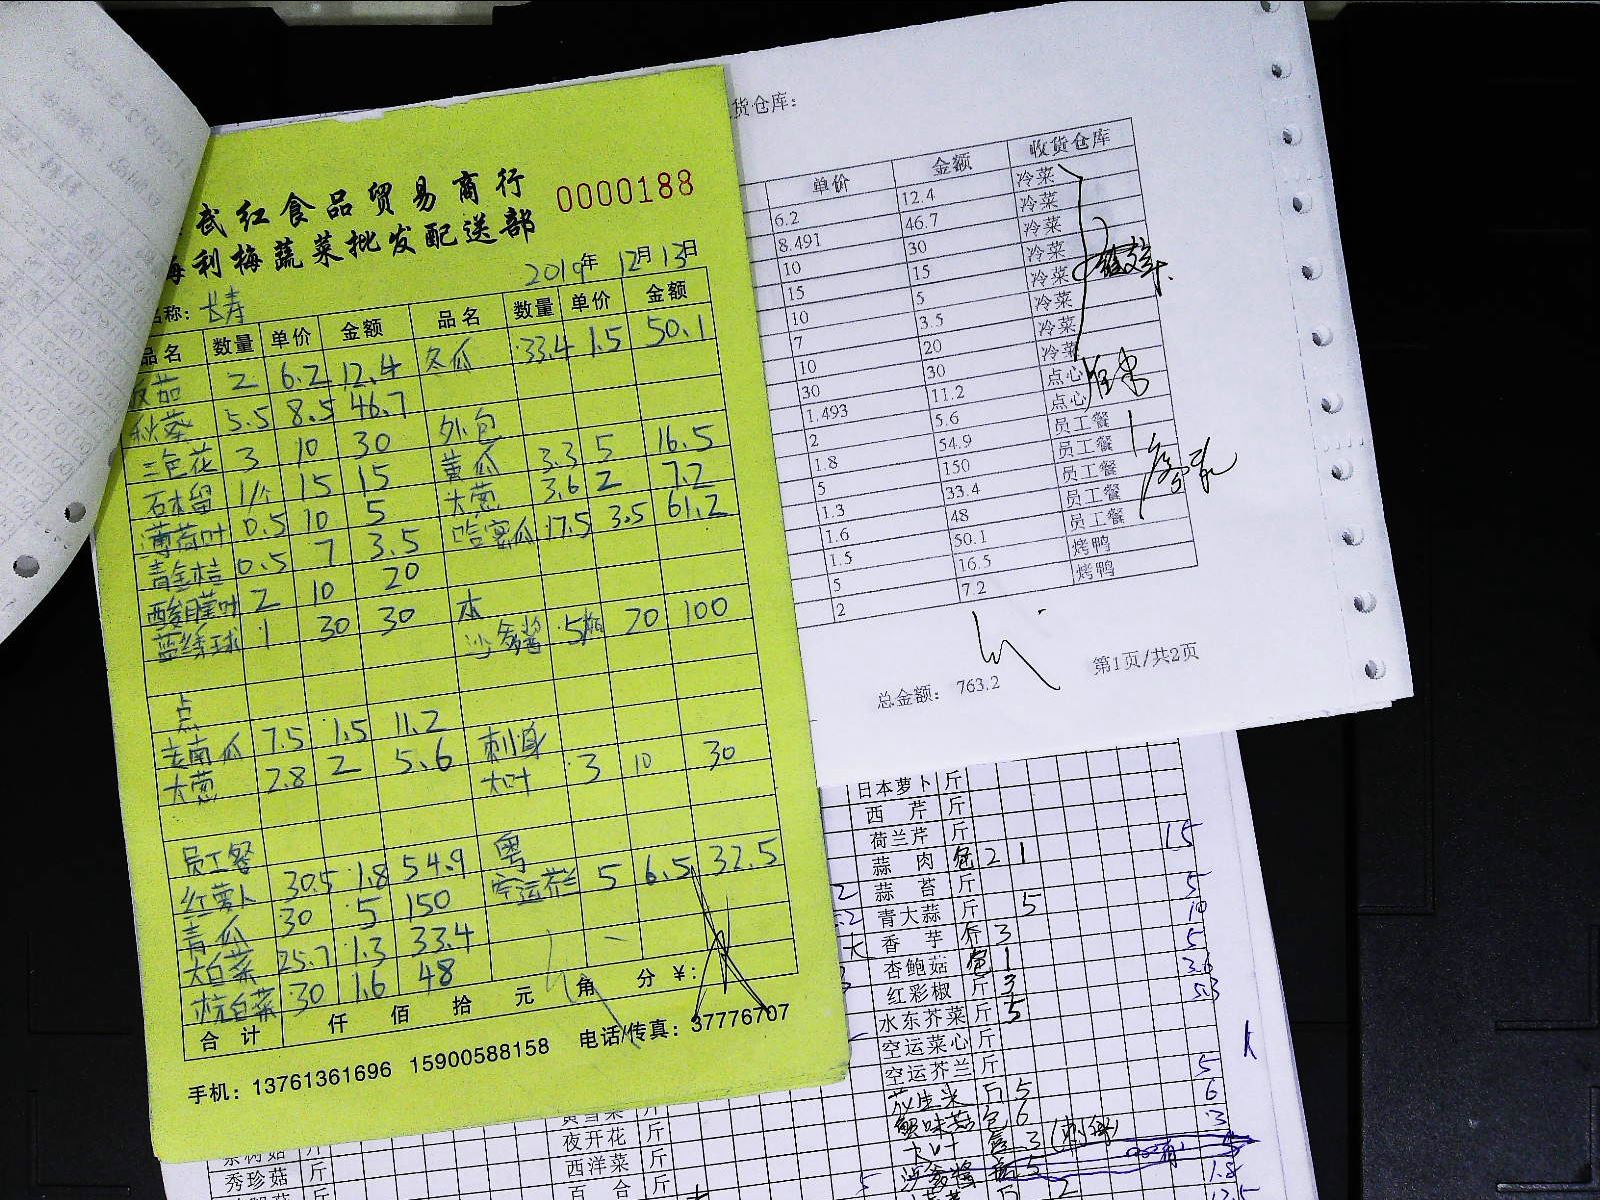 武红食品贸易商行
0000188
利梅蔬菜批发配送部
2019年 12月 13日
称: 长寿
品名 数量 单价 金额 品名 数量 单价 金额
茄 2 6.2 12.4 冬瓜 33.4 1.5 50.1
秋葵 5.5 8.5 46.7
三色花 3 10 30 外包
石木留 1个 15 15 黄瓜 3.3 5 16.5
薄荷叶 0.5 10 5 大葱 3.6 2 7.2
青金桔 0.5 7 3.5 哈密瓜 17.5 3.5 61.2
酸膜叶 2 10 20
蓝绣球 1 30 30 本
沙爹酱 5瓶 20 100
点
老南瓜 7.5 1.5 11.2 刺身
大葱 2.8 2 5.6 大叶 3 10 30
员工餐 粤
红萝卜 30.5 1.8 54.9 空运芥兰 5 6.5 32.5
青瓜 30 5 150
大白菜 25.7 1.3 33.4
杭白菜 30 1.6 48
合计 仟 佰 拾 元 角 分 ¥:
手机: 13761361696 15900588158 电话/传真: 37776707
货仓库:
单价 金额 收货仓库
6.2 12.4 冷菜
8.491 46.7 冷菜
10 30 冷菜
15 15 冷菜
10 5 冷菜
7 3.5 冷菜
10 20 冷菜
30 30 冷菜
1.493 11.2 点心
2 5.6 点心
1.8 54.9 员工餐
5 150 员工餐
1.3 33.4 员工餐
1.6 48 员工餐
1.5 50.1 员工餐
5 16.5 烤鸭
2 7.2 烤鸭
总金额: 763.2
第1页/共2页
日本萝卜 斤
西芹 斤
荷兰芹 斤 15
蒜肉 包 2 1
蒜苔 斤 5
青大蒜 斤 5 10
香芋 斤 3 5
杏鲍菇 包 1 3.6
红彩椒 斤 3 5.3
水东芥菜 斤 5
空运菜心 斤
空运芥兰 斤 5
花生米 斤 5 6
蟹味菇 包 6 3
大叶 3 (刺身)
沙爹酱 瓶 5 1.8
夜开花 斤
西洋菜 斤
百合 斤
秀珍菇 斤